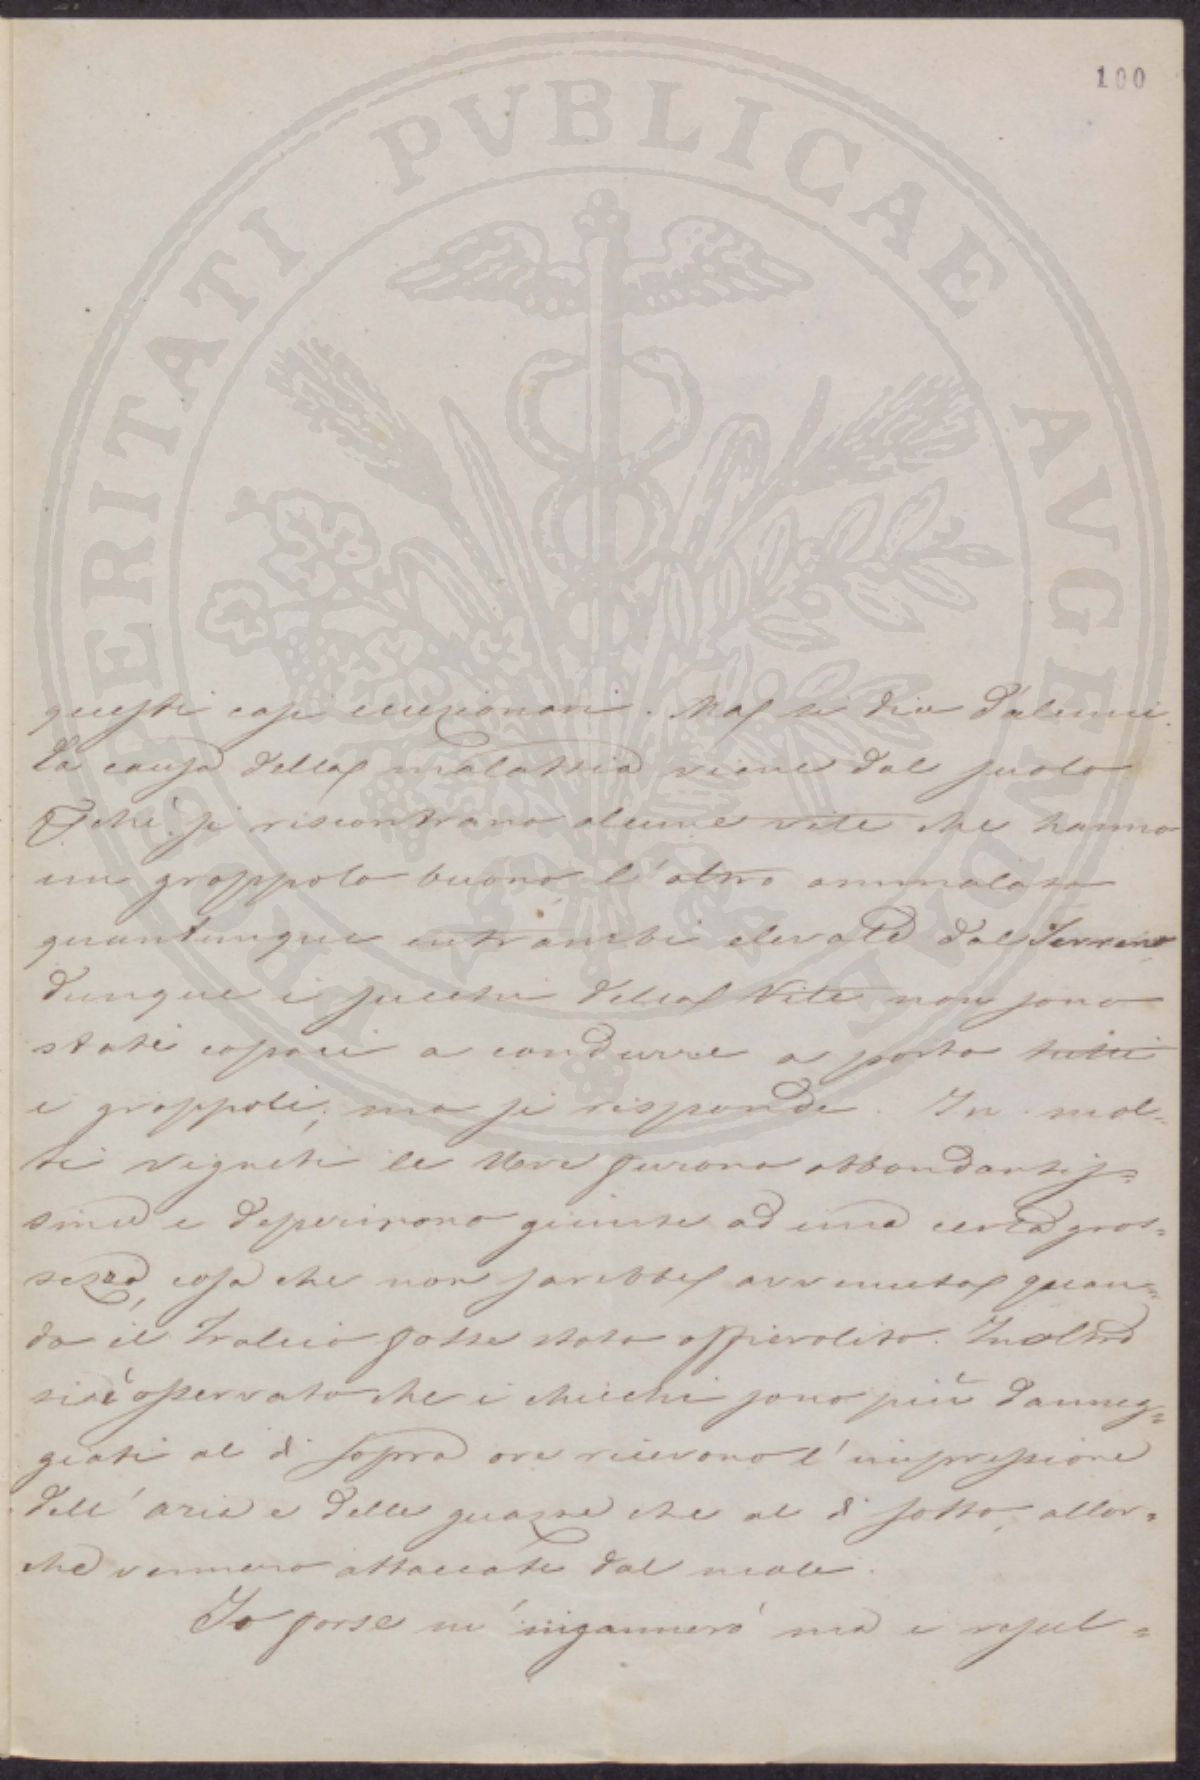 100
PROSPERITATI PVBLICAE AVGENDAE
questi casi eccezionari. Ma si dice d'alcuni.
La causa della malattia viene dal suolo
P.chè si riscontrano alcune vite che hanno
un grappolo buono l'altro ammalato
quantunque entrambi elevate dal Terreno
dunque i succhi della Vite non sono
stati capaci a condurre a porto tutti
i grappoli; ma si risponde. In mol=
ti vigneti le Uve furono abbondantis=
sime e deperirono giunte ad una certa gros=
sezza, cosa che non sarebbe avvenuta quan=
do il Tralcio fosse stato affievolito. Inoltre
si è osservato che i chicchi sono più danneg=
giati al di sopra ove ricevono l'impressione
dell'aria e delle guazze che al di sotto, allor=
chè vennero attaccati dal male.
Io forse m'ingannerò ma i resul=